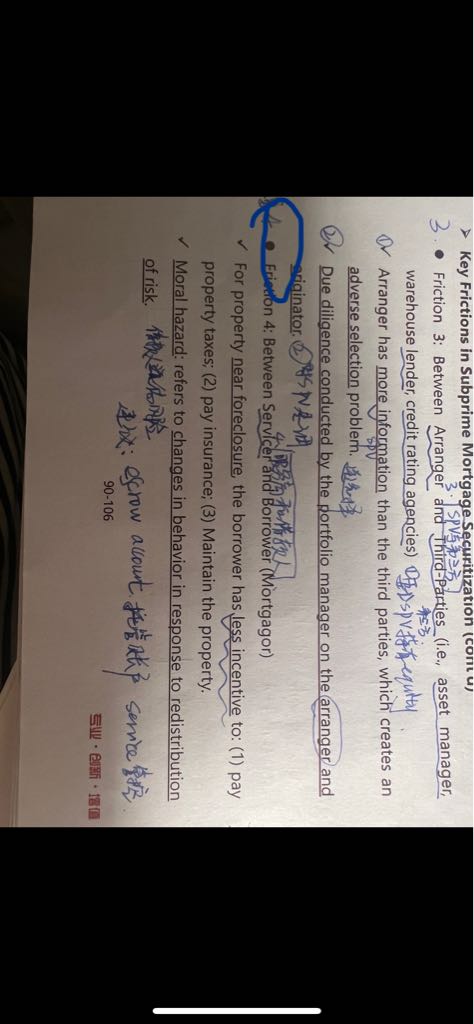 ➤ Key Frictions in Subprime Mortgage Securitization (cont'd)
3. SPV与第三方
3. ● Friction 3: Between Arranger and Third-Parties (i.e., asset manager,
第三方
warehouse lender, credit rating agencies)
① ✓ Arranger has more information than the third parties, which creates an
SPV
adverse selection problem. 逆向选择
② ✓ Due diligence conducted by the portfolio manager on the arranger and
originator.
4 服务商和借款人
4 ● Friction 4: Between Servicer and Borrower (Mortgagor)
✓ For property near foreclosure, the borrower has less incentive to: (1) pay
property taxes; (2) pay insurance; (3) Maintain the property.
✓ Moral hazard: refers to changes in behavior in response to redistribution
of risk. 借款人道德风险
建议: escrow account 托管账户 service 管控
90-106
专业·创新·增值